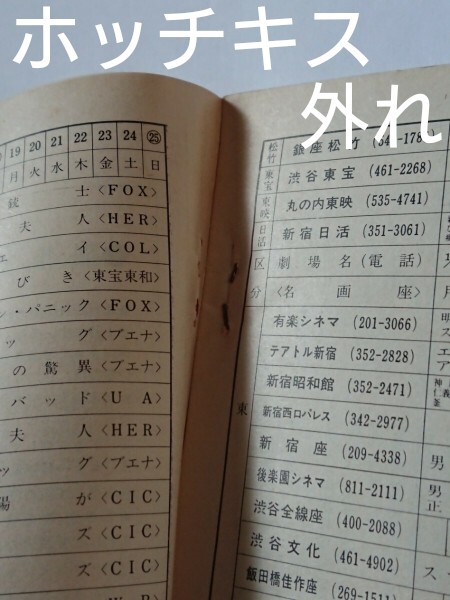 ホッチキス
外れ
19 20 21 22 23 24 ㉕
月 火 水 木 金 土 日
銃士〈FOX〉
夫人〈HER〉
エイ〈COL〉
びき〈東宝東和〉
ン・パニック〈FOX〉
ッグ〈ブエナ〉
の驚異〈ブエナ〉
バッド〈UA〉
夫人〈HER〉
ッグ〈ブエナ〉
陽が〈CIC〉
ズ〈CIC〉
ズ〈CIC〉
松竹 銀座松竹
東宝 渋谷東宝 (461-2268)
東映 丸の内東映 (535-4741)
日活 新宿日活 (351-3061)
区 劇場名(電話)
分 〈名画座〉
有楽シネマ (201-3066)
テアトル新宿 (352-2828)
新宿昭和館 (352-2471)
新宿西口パレス (342-2977)
東
新宿座 (209-4338)
後楽園シネマ (811-2111)
渋谷全線座 (400-2088)
渋谷文化 (461-4902)
飯田橋佳作座 (269-1511)